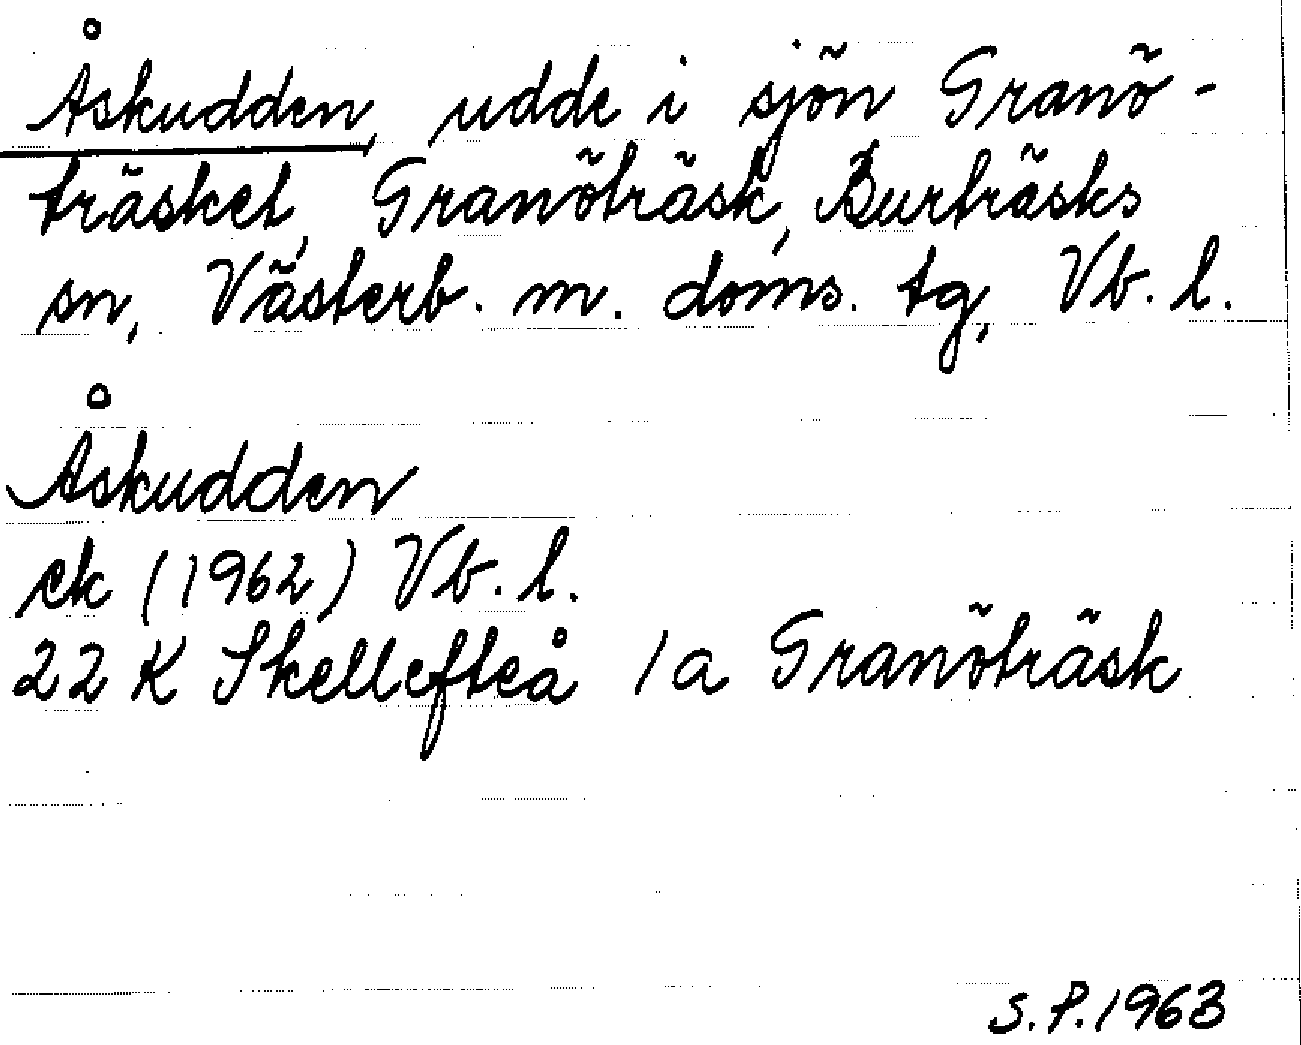 Åskudden, udde i sjön Granö-
träsket, Granöträsk, Burträsks
sn, Västerb. m. doms. tg, Vb. l.
Åskudden
ek (1962) Vb. l.
22 K Skellefteå 1a Granöträsk
S.P. 1963